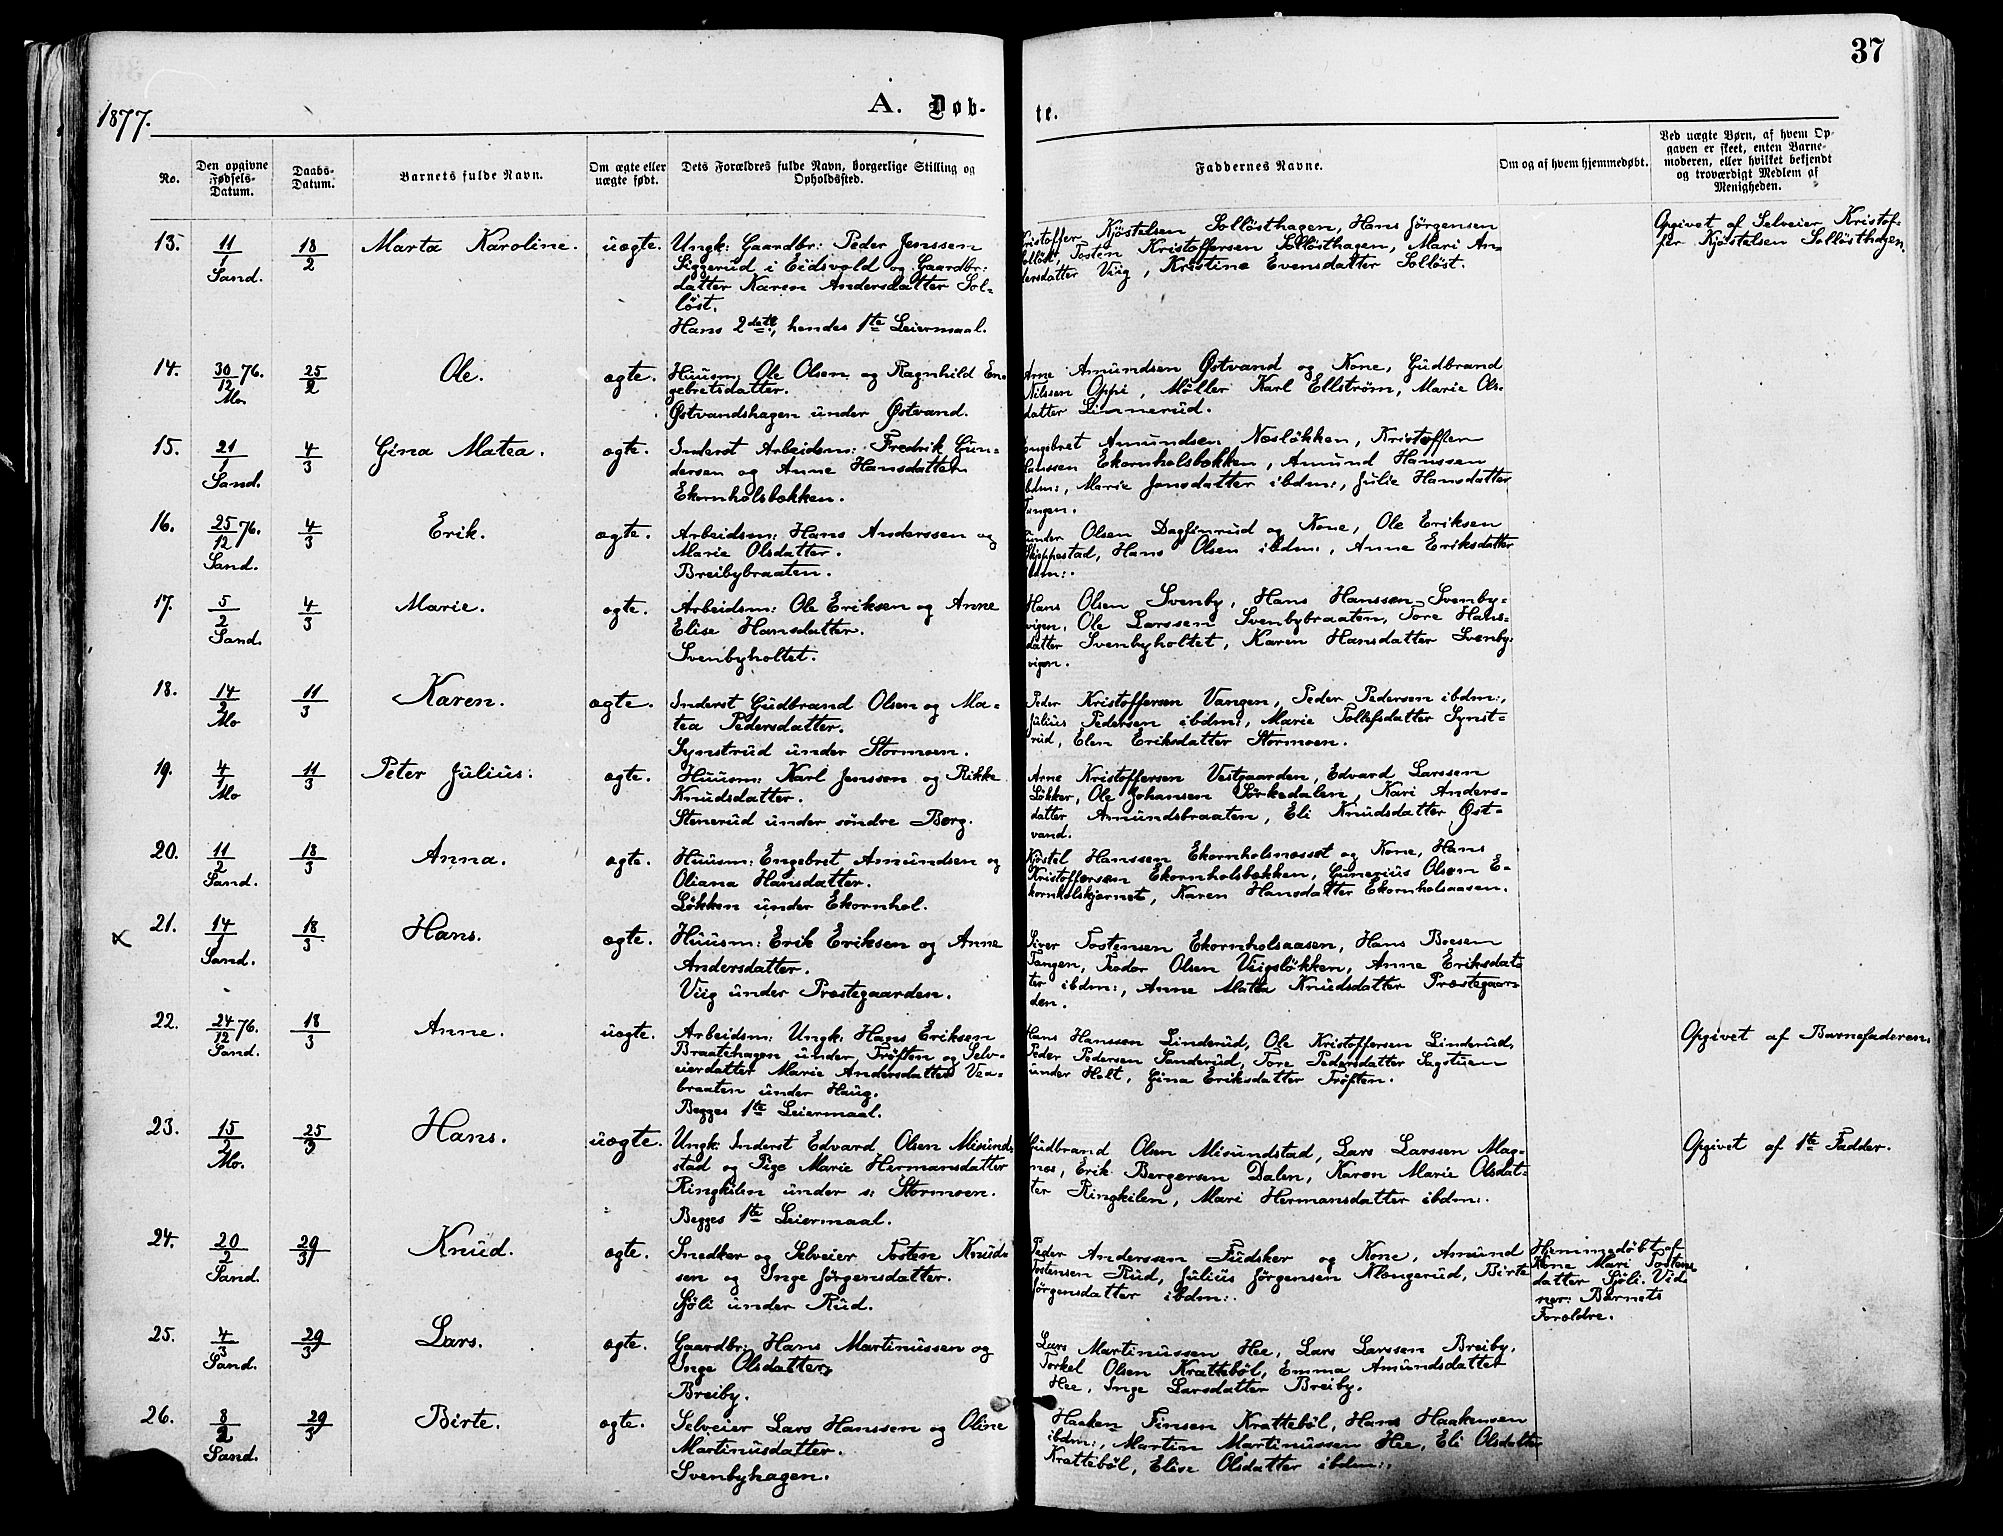 37
1877.
A. Døb-
te.
No.
Den opgivne
Fødsels-
Datum.
Daabs-
Datum.
Barnets fulde Navn.
Om ægte eller
uægte født.
Dets Forældres fulde Navn, borgerlige Stilling og
Opholdssted.
Faddernes Navne.
Om og af hvem hjemmedøbt.
Ved uægte Børn, af hvem Op-
gaven er skeet, enten Barne-
moderen, eller hvilket bekjendt
og troværdigt Medlem af
Menigheden.
13.
11/1
Sand.
18/2
Marta Karoline.
uægte.
Ungk: Gaardbr: Peder Jenssen
Siggerud i Eidsvold og Gaardbr:
datter Karen Andersdatter Sol-
løst.
Hans 2det, hendes 1te Leiermaal.
Kristoffer Kjøstelsen Solløsthagen, Hans Jørgensen
Solløst, Tosten Kristoffersen Solløsthagen, Mari An-
dersdatter Viig, Kristine Evensdatter Solløst.
Opgivet af Selveier Kristof-
fer Kjøstelsen Solløsthagen.
14.
30/12 76.
Mo.
25/2
Ole.
ægte.
Huusm: Ole Olsen og Ragnhild En-
gebretsdatter.
Østvandshagen under Østvand.
Arne Amundsen Østvand og Kone, Gudbrand
Nilssen Oppi, Møller Karl Ellstrøm, Marie Ols-
datter Linnerud.
15.
21/1
Sand.
4/3
Gina Matea.
ægte.
Inderst Arbeidsm: Fredrik Gun-
dersen og Anne Hansdatter
Ekornholsbækken.
Engebret Amundsen Næsløkken, Kristoffer
Hanssen Ekornholsbækken, Amund Hanssen
ibdm:, Marie Jonsdatter ibdm:, Julie Hansdatter
Tangen.
16.
25/12 76.
Sand.
4/3
Erik.
ægte.
Arbeidsm: Hans Anderssen og
Marie Olsdatter.
Breibybraaten.
Gunder Olsen Dagfinrud og Kone, Ole Eriksen
Skippestad, Hans Olsen ibdm:, Anne Eriksdatter
ibdm:.
17.
5/2
Sand.
4/3
Marie.
ægte.
Arbeidsm: Ole Eriksen og Anne
Elise Hansdatter.
Svenbyholtet.
Hans Olsen Svenby, Hans Hanssen Svenby-
vigen, Ole Larssen Svenbybraaten, Tore Hans-
datter Svenbyholtet, Karen Hansdatter Svenby-
vigen.
18.
14/2
Mo
11/3
Karen.
ægte.
Inderst Gudbrand Olsen og Ma-
tea Pedersdatter.
Synstrud under Stormoen.
Peder Kristoffersen Vangen, Peder Pedersen ibdm:,
Julius Pedersen ibdm:, Marie Tollefsdatter Synst-
rud, Elen Eriksdatter Stormoen.
19.
4/1
Mo
11/3
Peter Julius.
ægte.
Huusm: Karl Jenssen og Rikke
Knudsdatter.
Stenerud under søndre Berg.
Arne Kristoffersen Vestgaarden, Edvard Larssen
Løkker, Ole Johansen Sørkedalen, Kari Anders-
datter Amundsbraaten, Eli Knudsdatter Øst-
vand.
20.
11/2
Sand.
18/3
Anna.
ægte.
Huusm: Engebret Amundsen og
Oliana Hansdatter.
Løkken under Ekornhol.
Kjøstel Hanssen Ekornholsnæsset og Kone, Hans
Kristoffersen Ekornholsbækken, Gunerius Olsen E-
kornholskjernet, Karen Hansdatter Ekornholsaasen.
21.
14/1
Sand.
18/3
Hans.
ægte.
Huusm: Erik Eriksen og Anne
Andersdatter.
Viig under Præstegaarden.
Siver Tostensen Ekornholsaasen, Hans Boesen
Tangen, Teodor Olsen Viigsløkken, Anne Eriksdat-
ter ibdm:, Anne Matea Knudsdatter Præstegaar-
den.
22.
24/12 76.
Sand.
18/3
Anne.
uægte.
Arbeidsm: Ungk: Hans Eriksen
Braatehagen under Trøften og Selv-
eierdatter Marie Andersdatter Vea-
braaten under Haug.
Begges 1te Leiermaal.
Hans Hanssen Linderud, Ole Kristoffersen Linderud,
Peder Pedersen Sanderud, Tore Pedersdatter Sagstuen
under Holt, Gina Eriksdatter Trøften.
Opgivet af Barnefaderen.
23.
15/2
Mo.
25/3
Hans.
uægte.
Ungk: Inderst Edvard Olsen Misund-
stad og Pige Marie Hermansdatter
Ringkilen under s: Stormoen.
Begges 1te Leiermaal.
Gudbrand Olsen Misundstad, Lars Larssen Mag-
næs, Erik Bergersen Dalen, Karen Marie Olsdat-
ter Ringkilen, Mari Hermansdatter ibdm:.
Opgivet af 1te Fadder.
24.
20/2
Sand.
29/3
Knud.
ægte.
Snedker og Selveier Tosten Knud-
sen og Inge Jørgensdatter.
Sjøli under Rud.
Peder Anderssen Fudsker og Kone, Amund
Tostensen Rud, Julius Jørgensen Klongerud, Birte
Jørgensdatter ibdm:.
Hjemmedøbt af
Kone Mari Tostens-
datter Sjøli. Vid-
ner: Barnets
Forældre.
25.
4/3
Sand.
29/3
Lars.
ægte.
Gaardbr: Hans Martinussen og
Inge Olsdatter
Breiby.
Lars Martinussen Hee, Lars Larssen Breiby,
Torkel Olsen Krattebøl, Emma Amundsdatter
Hee, Inge Larsdatter Breiby.
26.
8/2
Sand.
29/3
Birte.
ægte.
Selveier Lars Hanssen og Oline
Martinusdatter.
Svenbyhagen.
Haaken Finsen Krattebøl, Hans Haakensen
ibdm:, Martin Martinussen Hee, Eli Olsdatter
Krattebøl, Elise Olsdatter ibdm:.